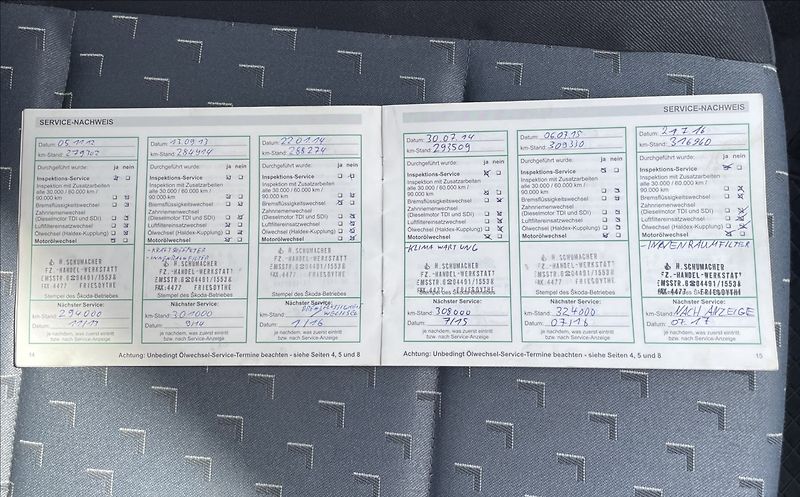 SERVICE-NACHWEIS
Datum: 05.11.12
km-Stand: 279702
Durchgeführt wurde: ja nein
Inspektions-Service
Inspektion mit Zusatzarbeiten
alle 30.000 / 60.000 km /
90.000 km
Bremsflüssigkeitswechsel
Zahnriemenwechsel
(Dieselmotor TDI und SDI)
Luftfiltereinsatzwechsel
Ölwechsel (Haldex-Kupplung)
Motorölwechsel
H. SCHUMACHER
FZ.-HANDEL-WERKSTATT
EMSSTR.8 04491/1553
FAX.4477 FRIESOYTHE
Stempel des Škoda-Betriebes
Nächster Service:
km-Stand: 294000
Datum: 11/13
je nachdem, was zuerst eintritt
bzw. nach Service-Anzeige
Datum: 13.09.13
km-Stand: 284914
Durchgeführt wurde: ja nein
Inspektions-Service
Inspektion mit Zusatzarbeiten
alle 30.000 / 60.000 km /
90.000 km
Bremsflüssigkeitswechsel
Zahnriemenwechsel
(Dieselmotor TDI und SDI)
Luftfiltereinsatzwechsel
Ölwechsel (Haldex-Kupplung)
Motorölwechsel
- INNENRAUMFILTER
H. SCHUMACHER
FZ.-HANDEL-WERKSTATT
EMSSTR.8 04491/1553
FAX.4477 FRIESOYTHE
Stempel des Škoda-Betriebes
Nächster Service:
km-Stand: 301000
Datum: 9/14
je nachdem, was zuerst eintritt
bzw. nach Service-Anzeige
Datum: 22.01.14
km-Stand: 288274
Durchgeführt wurde: ja nein
Inspektions-Service
Inspektion mit Zusatzarbeiten
alle 30.000 / 60.000 km /
90.000 km
Bremsflüssigkeitswechsel
Zahnriemenwechsel
(Dieselmotor TDI und SDI)
Luftfiltereinsatzwechsel
Ölwechsel (Haldex-Kupplung)
Motorölwechsel
H. SCHUMACHER
FZ.-HANDEL-WERKSTATT
EMSSTR.8 04491/15538
FAX.4477 FRIESOYTHE
Stempel des Škoda-Betriebes
Nächster Service:
km-Stand:
Datum: 1/16
je nachdem, was zuerst eintritt
bzw. nach Service-Anzeige
14 Achtung: Unbedingt Ölwechsel-Service-Termine beachten - siehe Seiten 4, 5 und 8
SERVICE-NACHWEIS
Datum: 30.07.14
km-Stand: 293509
Durchgeführt wurde: ja nein
Inspektions-Service
Inspektion mit Zusatzarbeiten
alle 30.000 / 60.000 km /
90.000 km
Bremsflüssigkeitswechsel
Zahnriemenwechsel
(Dieselmotor TDI und SDI)
Luftfiltereinsatzwechsel
Ölwechsel (Haldex-Kupplung)
Motorölwechsel
- KLIMAWARTUNG
H. SCHUMACHER
FZ.-HANDEL-WERKSTATT
EMSSTR.8 04491/15538
FAX.4477 FRIESOYTHE
Stempel des Škoda-Betriebes
Nächster Service:
km-Stand: 308000
Datum: 7/15
je nachdem, was zuerst eintritt
bzw. nach Service-Anzeige
Datum: 06.07.15
km-Stand: 309330
Durchgeführt wurde: ja nein
Inspektions-Service
Inspektion mit Zusatzarbeiten
alle 30.000 / 60.000 km /
90.000 km
Bremsflüssigkeitswechsel
Zahnriemenwechsel
(Dieselmotor TDI und SDI)
Luftfiltereinsatzwechsel
Ölwechsel (Haldex-Kupplung)
Motorölwechsel
H. SCHUMACHER
FZ.-HANDEL-WERKSTATT
EMSSTR.8 04491/15538
FAX.4477 FRIESOYTHE
Stempel des Škoda-Betriebes
Nächster Service:
km-Stand: 324000
Datum: 07/16
je nachdem, was zuerst eintritt
bzw. nach Service-Anzeige
Datum: 21.7.16
km-Stand: 316960
Durchgeführt wurde: ja nein
Inspektions-Service
Inspektion mit Zusatzarbeiten
alle 30.000 / 60.000 km /
90.000 km
Bremsflüssigkeitswechsel
Zahnriemenwechsel
(Dieselmotor TDI und SDI)
Luftfiltereinsatzwechsel
Ölwechsel (Haldex-Kupplung)
Motorölwechsel
- INNENRAUMFILTER
H. SCHUMACHER
FZ.-HANDEL-WERKSTATT
EMSSTR.8 04491/15538
FAX.4477 FRIESOYTHE
Stempel des Škoda-Betriebes
Nächster Service:
km-Stand: NACH ANZEIGE
Datum: 07.17
je nachdem, was zuerst eintritt
bzw. nach Service-Anzeige
Achtung: Unbedingt Ölwechsel-Service-Termine beachten - siehe Seiten 4, 5 und 8 15